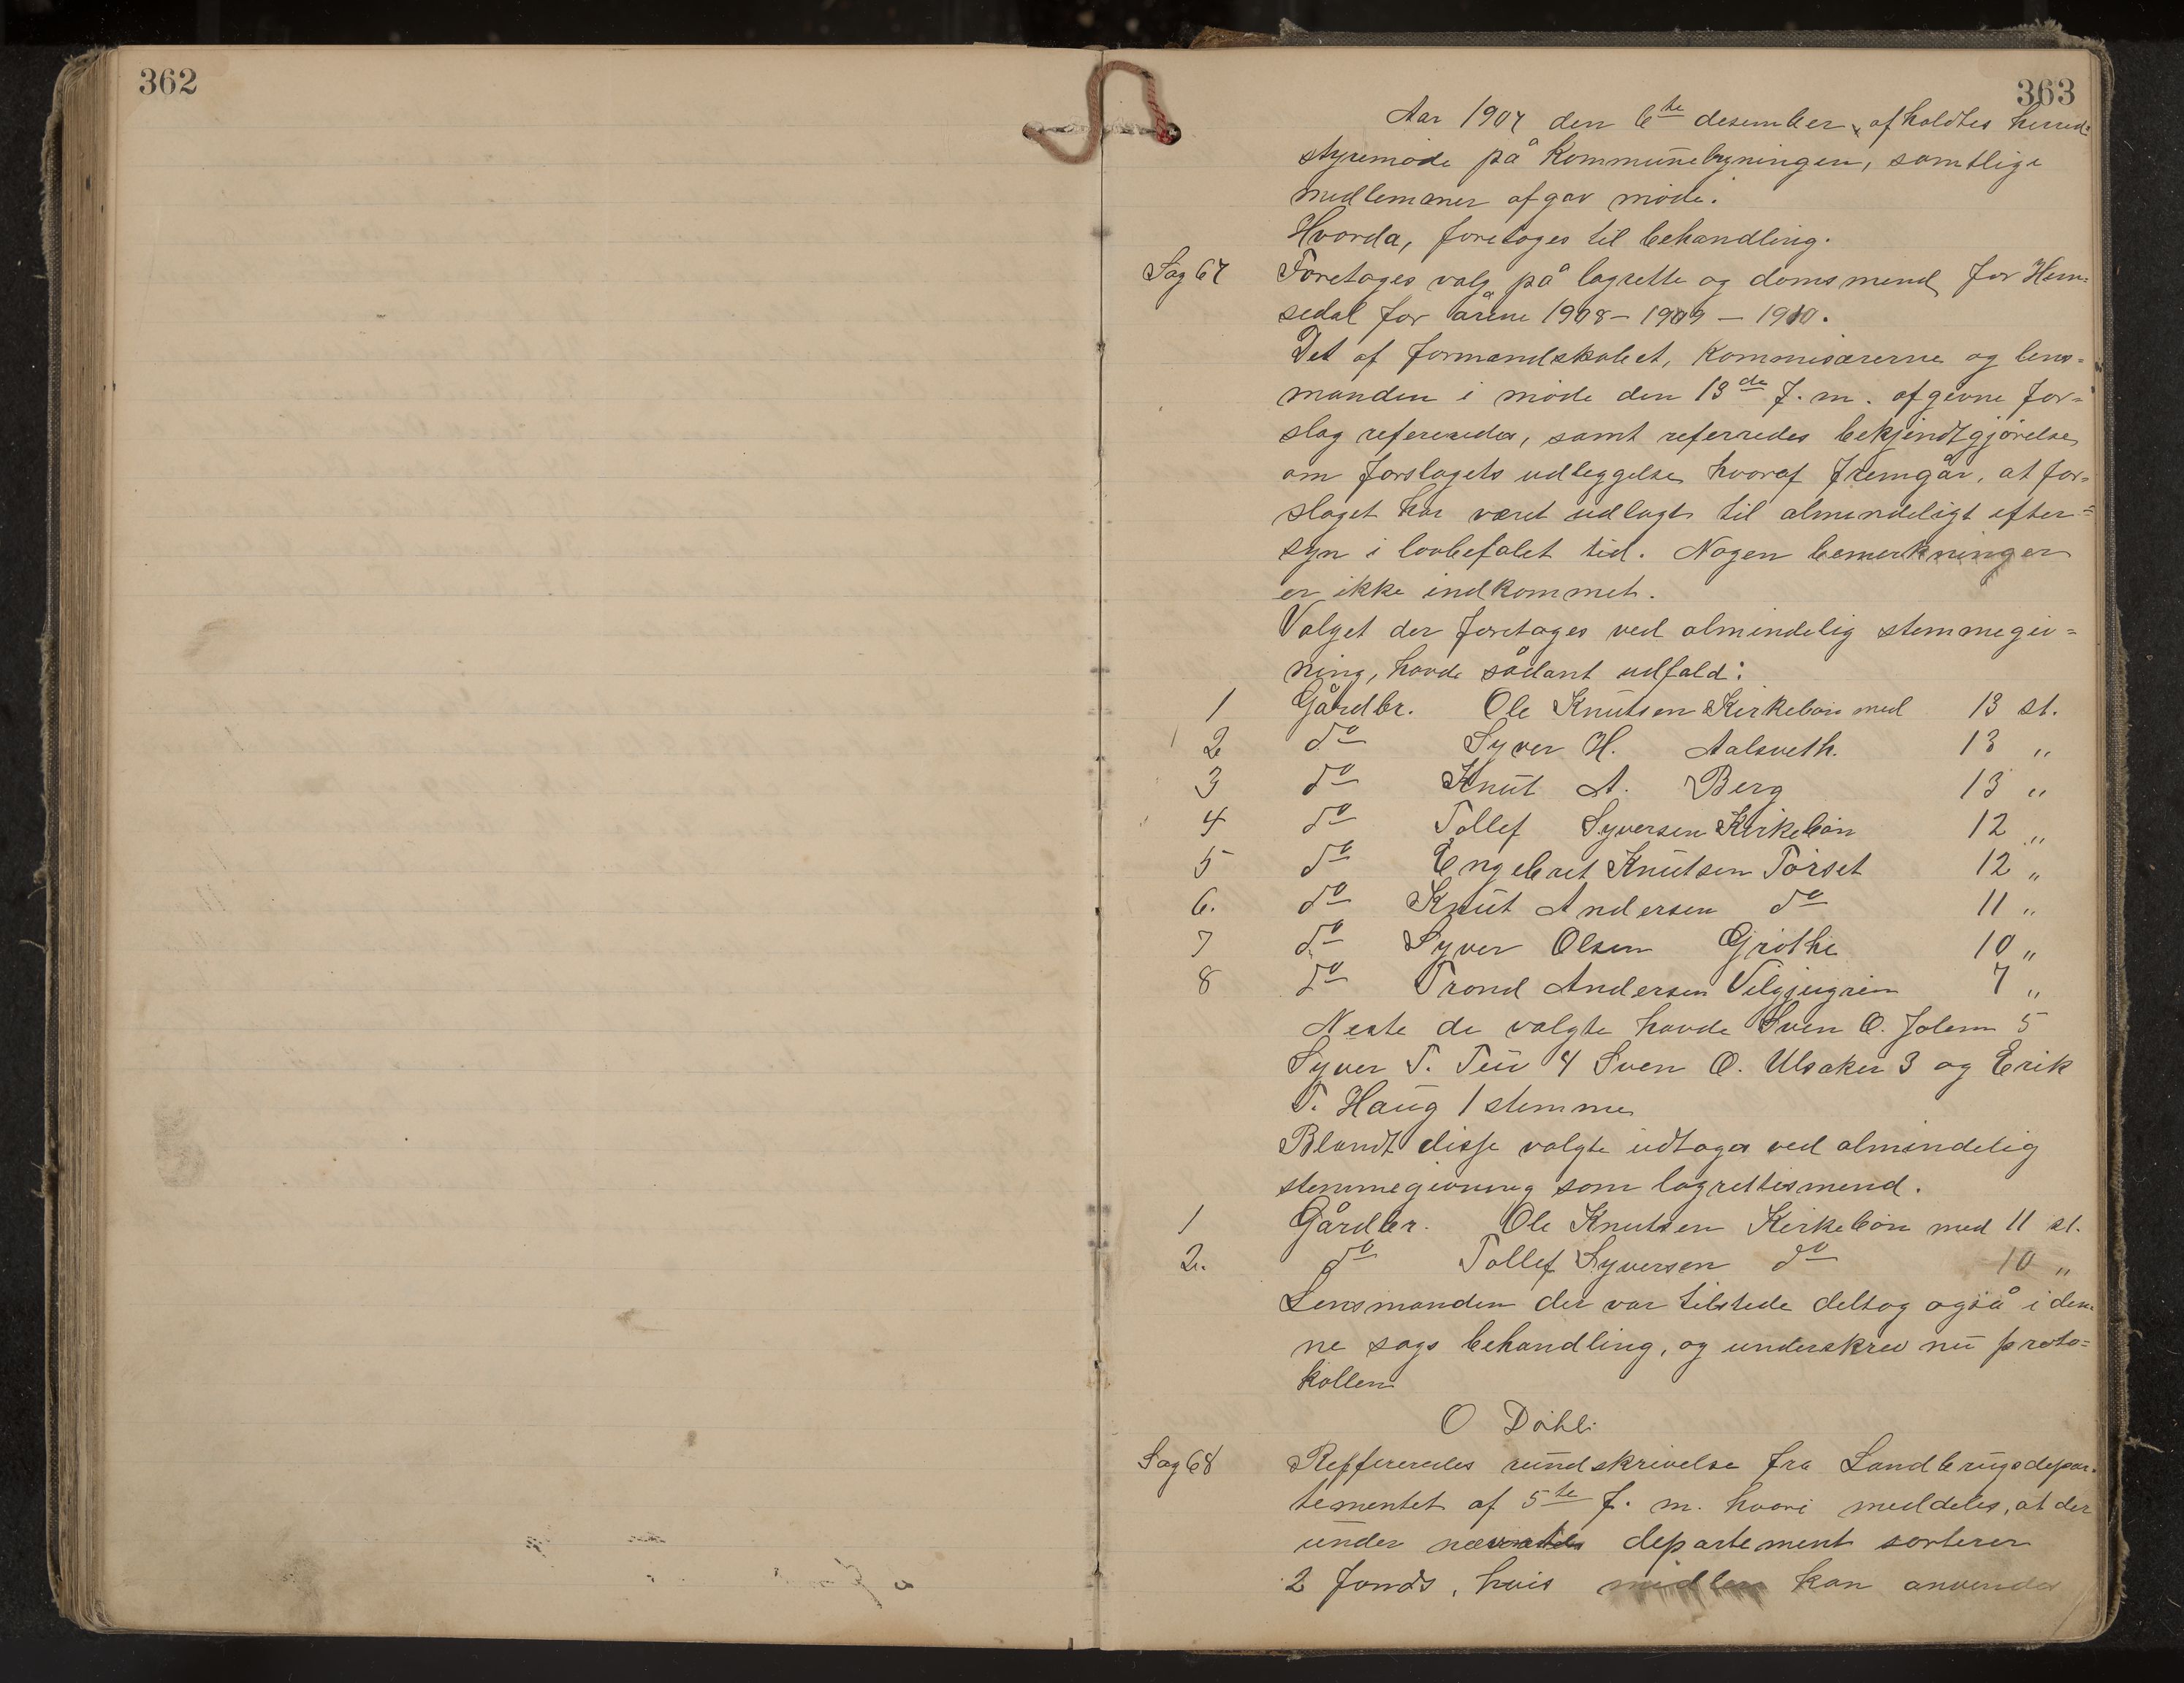 362
363
Aar 1907 den 6te desember, afholdtes herred-
styremøde på Kommunebygningen, samtlige
medlemmer afgav møde.
Hvorda, foretoges til behandling.
Sag 67 Foretoges valg på lagrette og domsmend for Hem-
sedal for årene 1908 – 1909 – 1910.
Det af formandskabet, Kommisærerne og lens-
manden i møde den 13de f. m. afgivne for-
slag refereredes, samt referredes bekjendtgjørelse
om forslagets udleggelse hvoraf fremgår, at for-
slaget har været udlagt til almindeligt efter-
syn i lovbefalet tid. Nogen bemerkninger
er ikke indkommet.
Valget der foretoges ved almindelig stemmegiv-
ning, havde sådant udfald:
1 Gårdbr. Ole Knutsen Kirkebøn med 13 st.
2 do Syver H. Aalsveth. 13 "
3 do Knut A. Berg 13 "
4 do Tollef Syversen Kirkebøn 12 "
5 do Engebret Knutsen Tørset 12 "
6. do Knut Andersen do 11 "
7 do Syver Olsen Grøthe 10 "
8 do Trond Andersen 7 "
Neste de valgte havde Sven O. Jolem 5
Syver T. Tuv 4 Sven O. Ulsaker 3 og Erik
T. Haug 1 stemme
Blandt disse valgte udtoges ved almindelig
stemmegivning som lagrettesmend.
1 Gårdbr. Ole Knutsen Kirkebøn med 11 st.
2. do Tollef Syversen do 10 "
Lensmanden der var tilstede deltog også i den-
ne sags behandling, og underskrev nu proto-
kollen
O Døhli
Sag 68 Reffereredes rundskrivelse fra Landbrugsdepar-
tementet af 5te f. m. hvori meddeles, at der
under nævnte departement sorterer
2 fonds, hvis midler kan anvendes